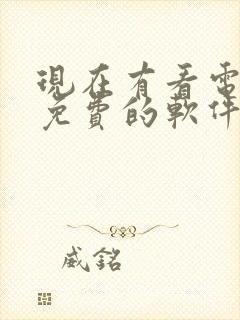 現在有看電
免費的軟件
威銘